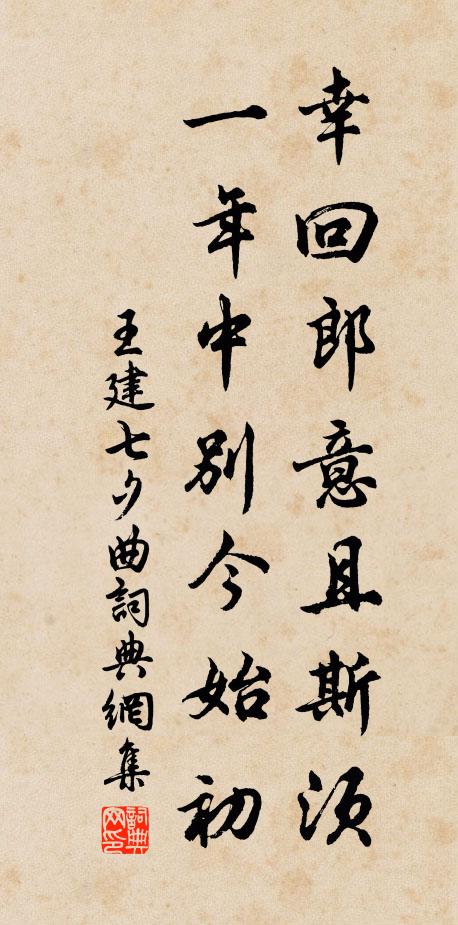 幸回郎意且斯須
一年中別今始初
王建七夕曲詞典網集
詞典网印